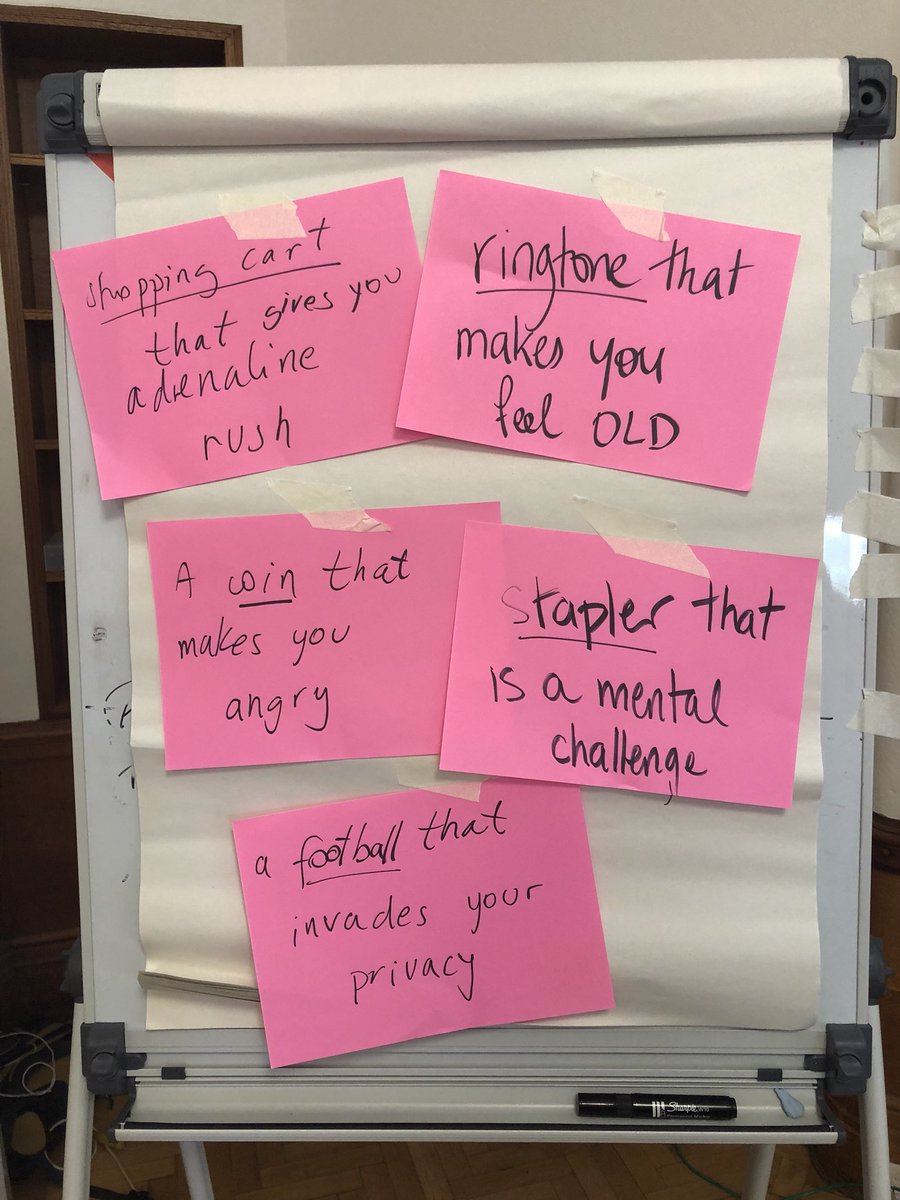 shopping cart
that gives you
adrenaline
rush
ringtone that
makes you
feel OLD
A win that
makes you
angry
stapler that
is a mental
challenge
a football that
invades your
privacy
Sharpie W10